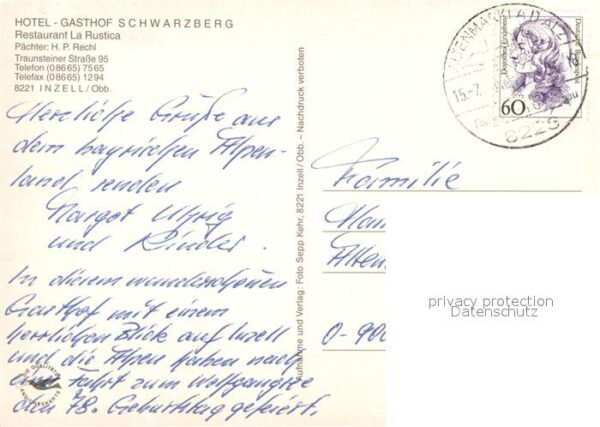 HOTEL - GASTHOF SCHWARZBERG
Restaurant La Rustica
Pächter: H. P. Rechl
Traunsteiner Straße 95
Telefon (08665) 7565
Telefax (08665) 1294
8221 INZELL/Obb.
Herzliche Grüße aus
dem bayrischen Alpen-
land senden
Margot Uhrig
und Kinder.
In diesem wunderschönen
Gasthof mit einem
herrlichen Blick auf Inzell
und die Alpen haben nach
einer Fahrt zum Wolfgangsee
den 78. Geburtstag gefeiert.
Aufnahme und Verlag: Foto Sepp Kehr, 8221 Inzell/Obb. - Nachdruck verboten
ALTENMARKT A D ALZ
15.-7.
8226
Deutsche Bundespost
60
Familie
Man
Alten
O-900
privacy protection
Datenschutz